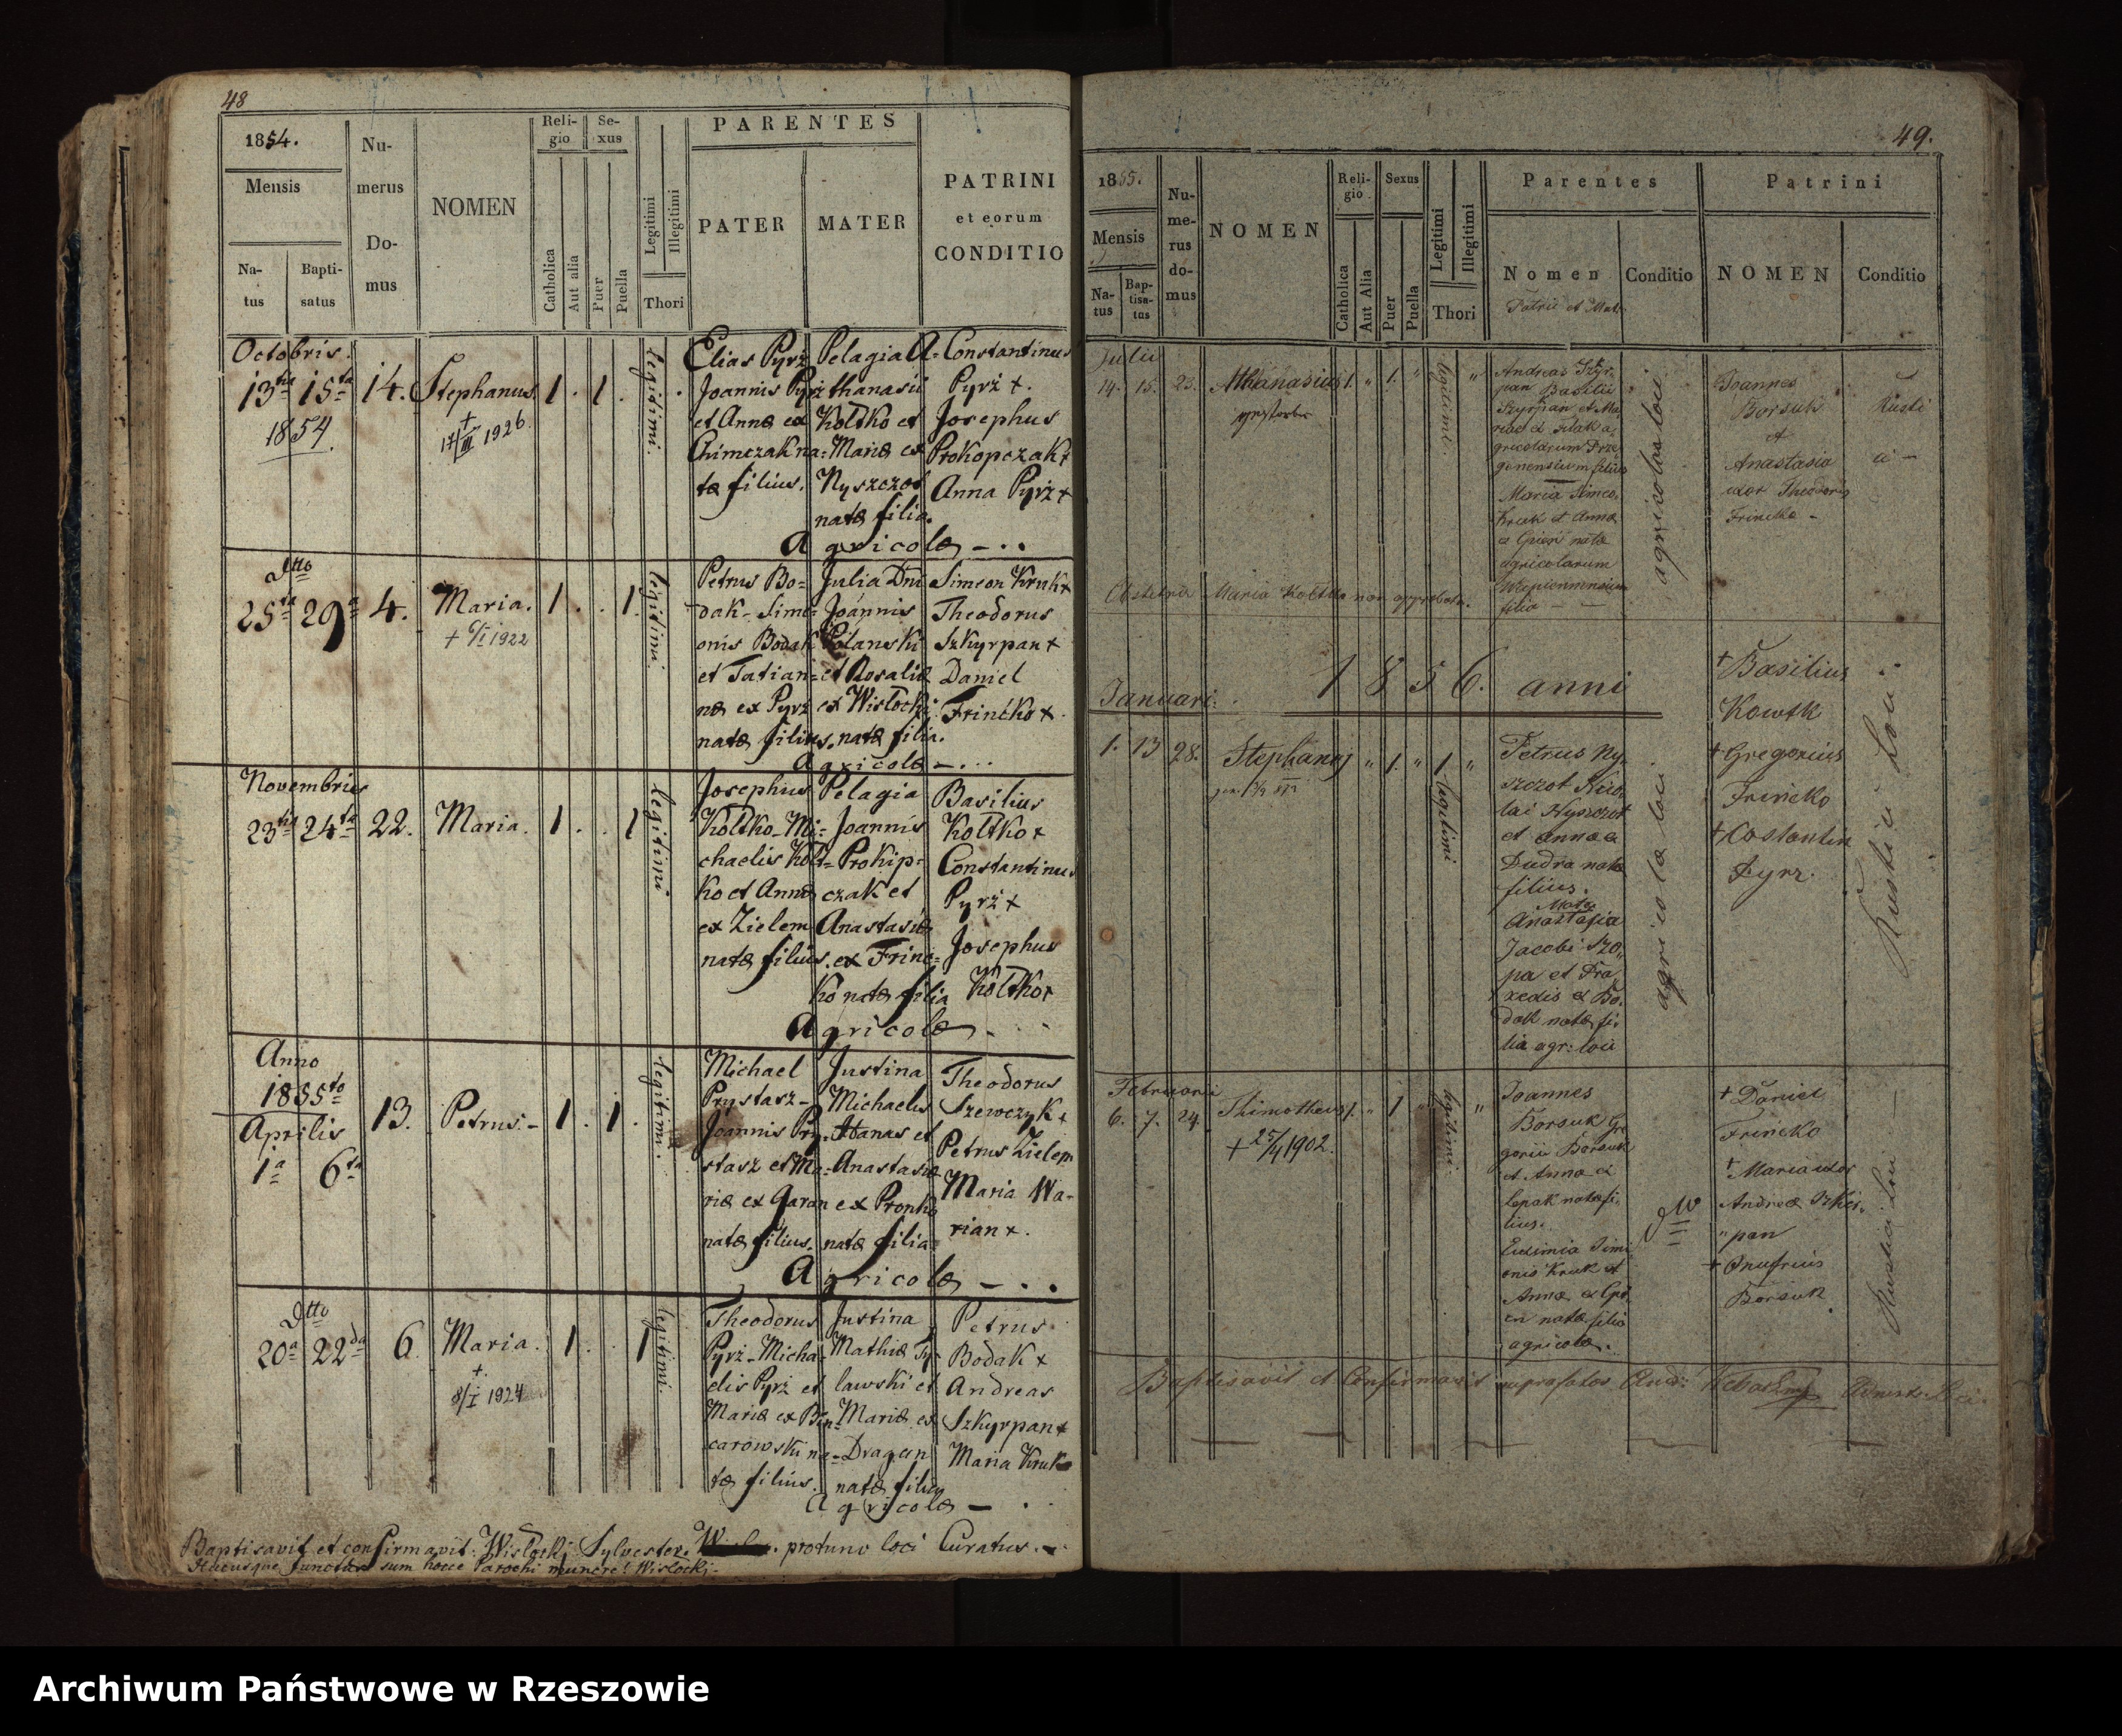 48
1854.
Mensis
Na-
tus
Bapti-
satus
Nu-
merus
Do-
mus
NOMEN
Reli-
gio
Catholica
Aut alia
Se-
xus
Puer
Puella
Legitimi
Illegitimi
Thori
PARENTES
PATER
MATER
PATRINI
et eorum
CONDITIO
Octobris.
13tia 15ta 14. Stephanus. 1 . 1 .
1854.
+ 17/III 1926
legitimi.
Elias Pyrż
Joannis Pyrż
et Annæ ex
Chimczak na=
tæ filius.
Pelagia A=
thanasii
Koltko et
Mariæ ex
Nyszczot
natæ filia.
Constantinus
Pyrż +.
Josephus
Prokopczak +
Anna Pyrż +
Agricolæ
Dtto
25ta 29a 4. Maria. 1 . . 1.
+ 6/I 1922
legitimi.
Petrus Bo=
dak - Sime=
onis Bodak
et Tatian=
næ ex Pyrż
natæ filius.
Julia Dni
Joannis
Polanski
et Rosaliæ
ex Wisłocki
natæ filia.
Simeon Kruk +
Theodorus
Szkyrpan +
Daniel
Frinćko +.
Agricolæ
Novembris
23tia 24ta 22. Maria. 1 . . 1
legitimi
Josephus
Koltko - Mi=
chaelis Kolt=
ko et Annæ
ex Zielem
natæ filius.
Pelagia
Joannis
Prokip=
czak et
Anastasiæ
ex Frinć=
ko natæ filia
Basilius
Koltko +
Constantinus
Pyrż +
Josephus
Koltko +
Agricolæ
Anno
1855to
Aprilis
1a 6ta 13. Petrus. - 1 . 1 .
legitimi.
Michael
Prystasz -
Joannis Pry=
stasz et Ma=
riæ ex Garan
natæ filius.
Justina
Michaelis
Hanas et
Anastasiæ
ex Pronko
natæ filia
Theodorus
Szewczyk +
Petrus Zielem
Maria Wa-
rian +.
Agricolæ
Dtto
20a 22da 6 Maria. 1 . . 1
+
8/I 1924
legitimi
Theodorus
Pyrż - Micha=
elis Pyrż et
Mariæ ex Bin=
carowski na=
tæ filius.
Justina
Mathiæ Ty=
lawski et
Mariæ ex
Dragan
natæ filia
Petrus
Bodak +
Andreas
Szkyrpan +
Maria Kruk
Agricolæ
Baptisavit et confirmavit: Wisłockj Sylvester. protunc loci Curatus.
Hucusque functus sum hocce Parochi munere! Wisłockj.
49.
1855.
Mensis
Na-
tus
Bap-
tisa-
tus
Nu-
me-
rus
do-
mus
NOMEN
Reli-
gio
Catholica
Aut Alia
Sexus
Puer
Puella
Legitimi
Illegitimi
Thori
Parentes
Nomen
Patris et Mat.
Conditio
Patrini
NOMEN
Conditio
Julii
14. 15. 23. Athanasius 1. " 1. " "
legitimi
Andreas Szkyr-
pan Basilii
Szyrpan et Ma
riæ ex
gricolarum
filius
Maria Simeo.
Kruk et Annæ
natæ
agricolarum
filia
agricolæ loci
Joannes
Borsuk
et
Anastasia
uxor Theodoris
Frincko -
Rusti
ci -
Obstetrix Maria Koltko non approbata.
Januari. 1 8 5 6. anni
1. 13 28. Stephanus " 1. " 1 "
legitimi
Petrus Ny
szczot Nico
lai Nyszczot
et Annæ e
Dudra natæ
filius.
Mater
Anastasia
Jacobi Szo,
pa et Pra
xedis ex Bo.
dak natæ fi.
lia agr: loci
agricolæ loci
+ Basilius
Kowtk
+ Gregorius
Frincko
+ Costantin
Pyrz.
Rustici Loci
Februarii
6. 7. 24. Thimotheus 1. " 1 " "
+ 25/4 1902.
legitimi
Joannes
Borsuk Gre
gorii Borsuk
et Anna ex
Lepak natæ fi.
lius.
Eudimia Simi
onis Kruk et
Annæ ex
natæ filia
agricolæ.
+ Daniel
Frincko
+ Maria uxor
Andreæ Szkir.
"pan
+ Onufrius
Borsuk
Rustici Loci
Baptisavit et Confirmavit
Archiwum Państwowe w Rzeszowie